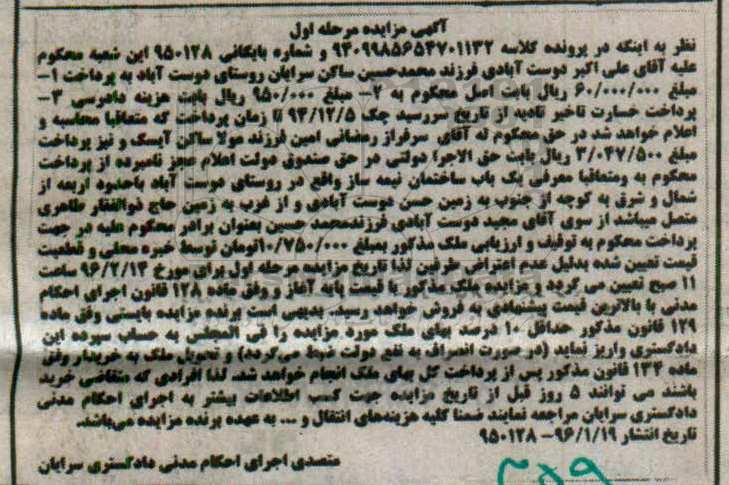 آگهی مزایده مرحله اول
نظر به اینکه در پرونده کلاسه ۹۴۰۹۹۸۵۶۵۴۷۰۱۱۳۲ و شماره بایگانی ۹۵۰۱۲۸ این شعبه محکوم
علیه آقای علی اکبر دوست آبادی فرزند محمدحسین ساکن سرایان روستای دوست آباد به پرداخت ۱-
مبلغ ۶۰/۰۰۰/۰۰۰ ریال بابت اصل محکوم به ۲- مبلغ ۹۵۰/۰۰۰ ریال بابت هزینه دادرسی ۳-
پرداخت خسارت تاخیر تادیه از تاریخ سررسید چک ۹۴/۱۲/۵ تا زمان پرداخت که متعاقبا محاسبه و
اعلام خواهد شد در حق محکوم له آقای سرفراز رمضانی امین فرزند مولا ساکن آیسک و نیز پرداخت
مبلغ ۳/۰۴۷/۵۰۰ ریال بابت حق الاجرا دولتی در حق صندوق دولت اعلام عجز نامبرده از پرداخت
محکوم به ومتعاقبا معرفی یک باب ساختمان نیمه ساز واقع در روستای دوست آباد باحدود اربعه از
شمال و شرق به کوچه از جنوب به زمین حسن دوست آبادی و از غرب به زمین حاج ذوالفقار طاهری
متصل میباشد از سوی آقای مجید دوست آبادی فرزندمحمد حسین بعنوان برادر محکوم علیه در جهت
پرداخت محکوم به توقیف و ارزیابی ملک مذکور بمبلغ ۱۰/۷۵۰/۰۰۰تومان توسط خبره محلی و قطعیت
قیمت تعیین شده بدلیل عدم اعتراض طرفین لذا تاریخ مزایده مرحله اول برای مورخ ۹۶/۲/۱۴ ساعت
۱۱ صبح تعیین می گردد و مزایده ملک مذکور با قیمت پایه آغاز و وفق ماده ۱۲۸ قانون اجرای احکام
مدنی با بالاترین قیمت پیشنهادی به فروش خواهد رسید. بدیهی است برنده مزایده بایستی وفق ماده
۱۲۹ قانون مذکور حداقل ۱۰ درصد بهای ملک مورد مزایده را فی المجلس به حساب سپرده این
دادگستری واریز نماید (در صورت انصراف به نفع دولت ضبط می‌گردد) و تحویل ملک به خریدار وفق
ماده ۱۳۴ قانون مذکور پس از پرداخت کل بهای ملک انجام خواهد شد. لذا افرادی که متقاضی خرید
باشند می توانند ۵ روز قبل از تاریخ مزایده جهت کسب اطلاعات بیشتر به اجرای احکام مدنی
دادگستری سرایان مراجعه نمایند ضمنا کلیه هزینه‌های انتقال و ... به عهده برنده مزایده می‌باشد.
تاریخ انتشار ۹۶/۱/۱۹- ۹۵۰۱۲۸
متصدی اجرای احکام مدنی دادگستری سرایان